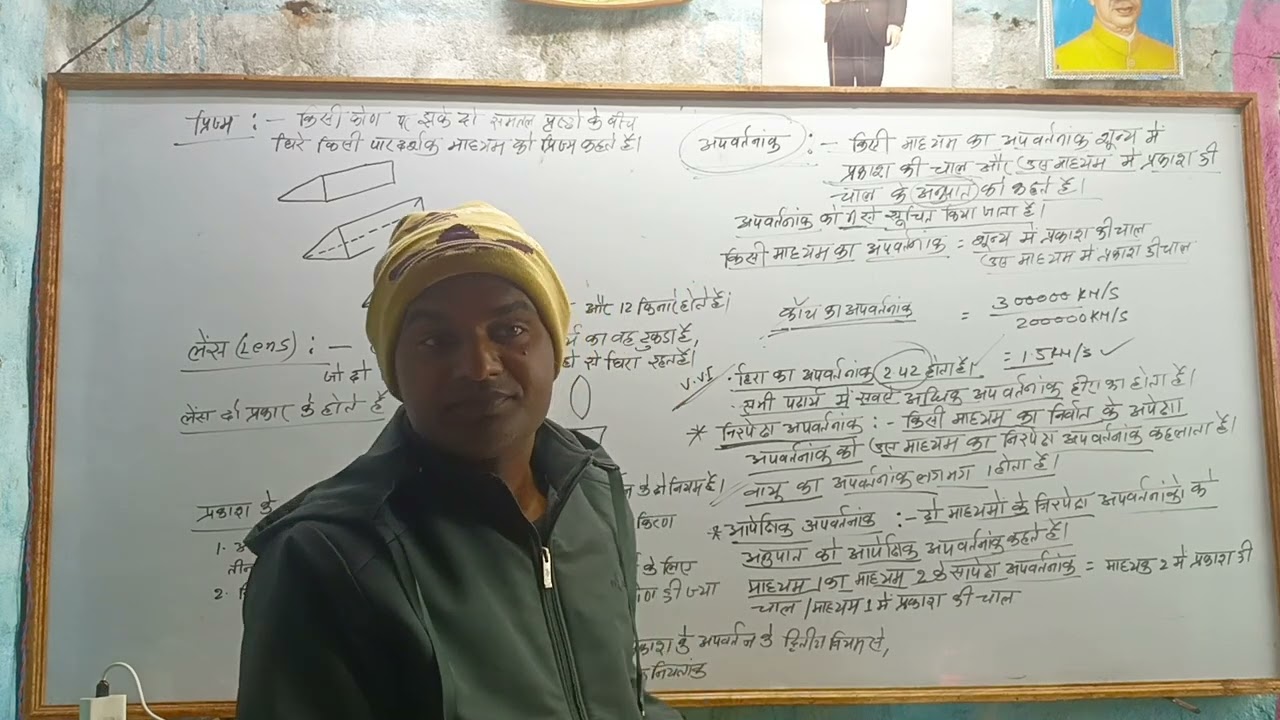 प्रिज्म :- किसी कोण पर झुके दो समतल पृष्ठो के बीच
घिरे किसी पारदर्शक माध्यम को प्रिज्म कहते हैं।
और 12 किनारे होते हैं।
लेंस (Lens) : -
का वह टुकड़ा है,
जो दो
से घिरा रहता है।
लेंस दो प्रकार के होते हैं
के दो नियम है।
प्रकाश के
किरण
1.
के लिए
तीन
2.
की ज्या
प्रकाश के अपवर्तन के द्वितीय नियम से,
नियतांक
अपवर्तनांक :- किसी माध्यम का अपवर्तनांक शून्य में
प्रकाश की चाल और उस माध्यम में प्रकाश की
चाल के अनुपात को कहते हैं।
अपवर्तनांक को n से सूचित किया जाता हैं।
किसी माध्यम का अपवर्तनांक = शून्य में प्रकाश की चाल
उस माध्यम में प्रकाश की चाल
काँच का अपवर्तनांक = 300000 KM/S
200000 KM/S
= 1.5 KM/S ✓
V.VI • हिरा का अपवर्तनांक 2.42 होता है।
• सभी पदार्थ में सबसे अधिक अपवर्तनांक हीरा का होता हैं।
* निरपेक्ष अपवर्तनांक :- किसी माध्यम का निर्वात के अपेक्षा
अपवर्तनांक को उस माध्यम का निरपेक्ष अपवर्तनांक कहलाता है।
वायु का अपवर्तनांक लगभग 1 होता हैं।
* आपेक्षिक अपवर्तनांक :- दो माध्यमो के निरपेक्ष अपवर्तनांको के
अनुपात को आपेक्षिक अपवर्तनांक कहते हैं।
माध्यम 1 का माध्यम 2 के सापेक्ष अपवर्तनांक = माध्यम 2 में प्रकाश की
चाल / माध्यम 1 में प्रकाश की चाल